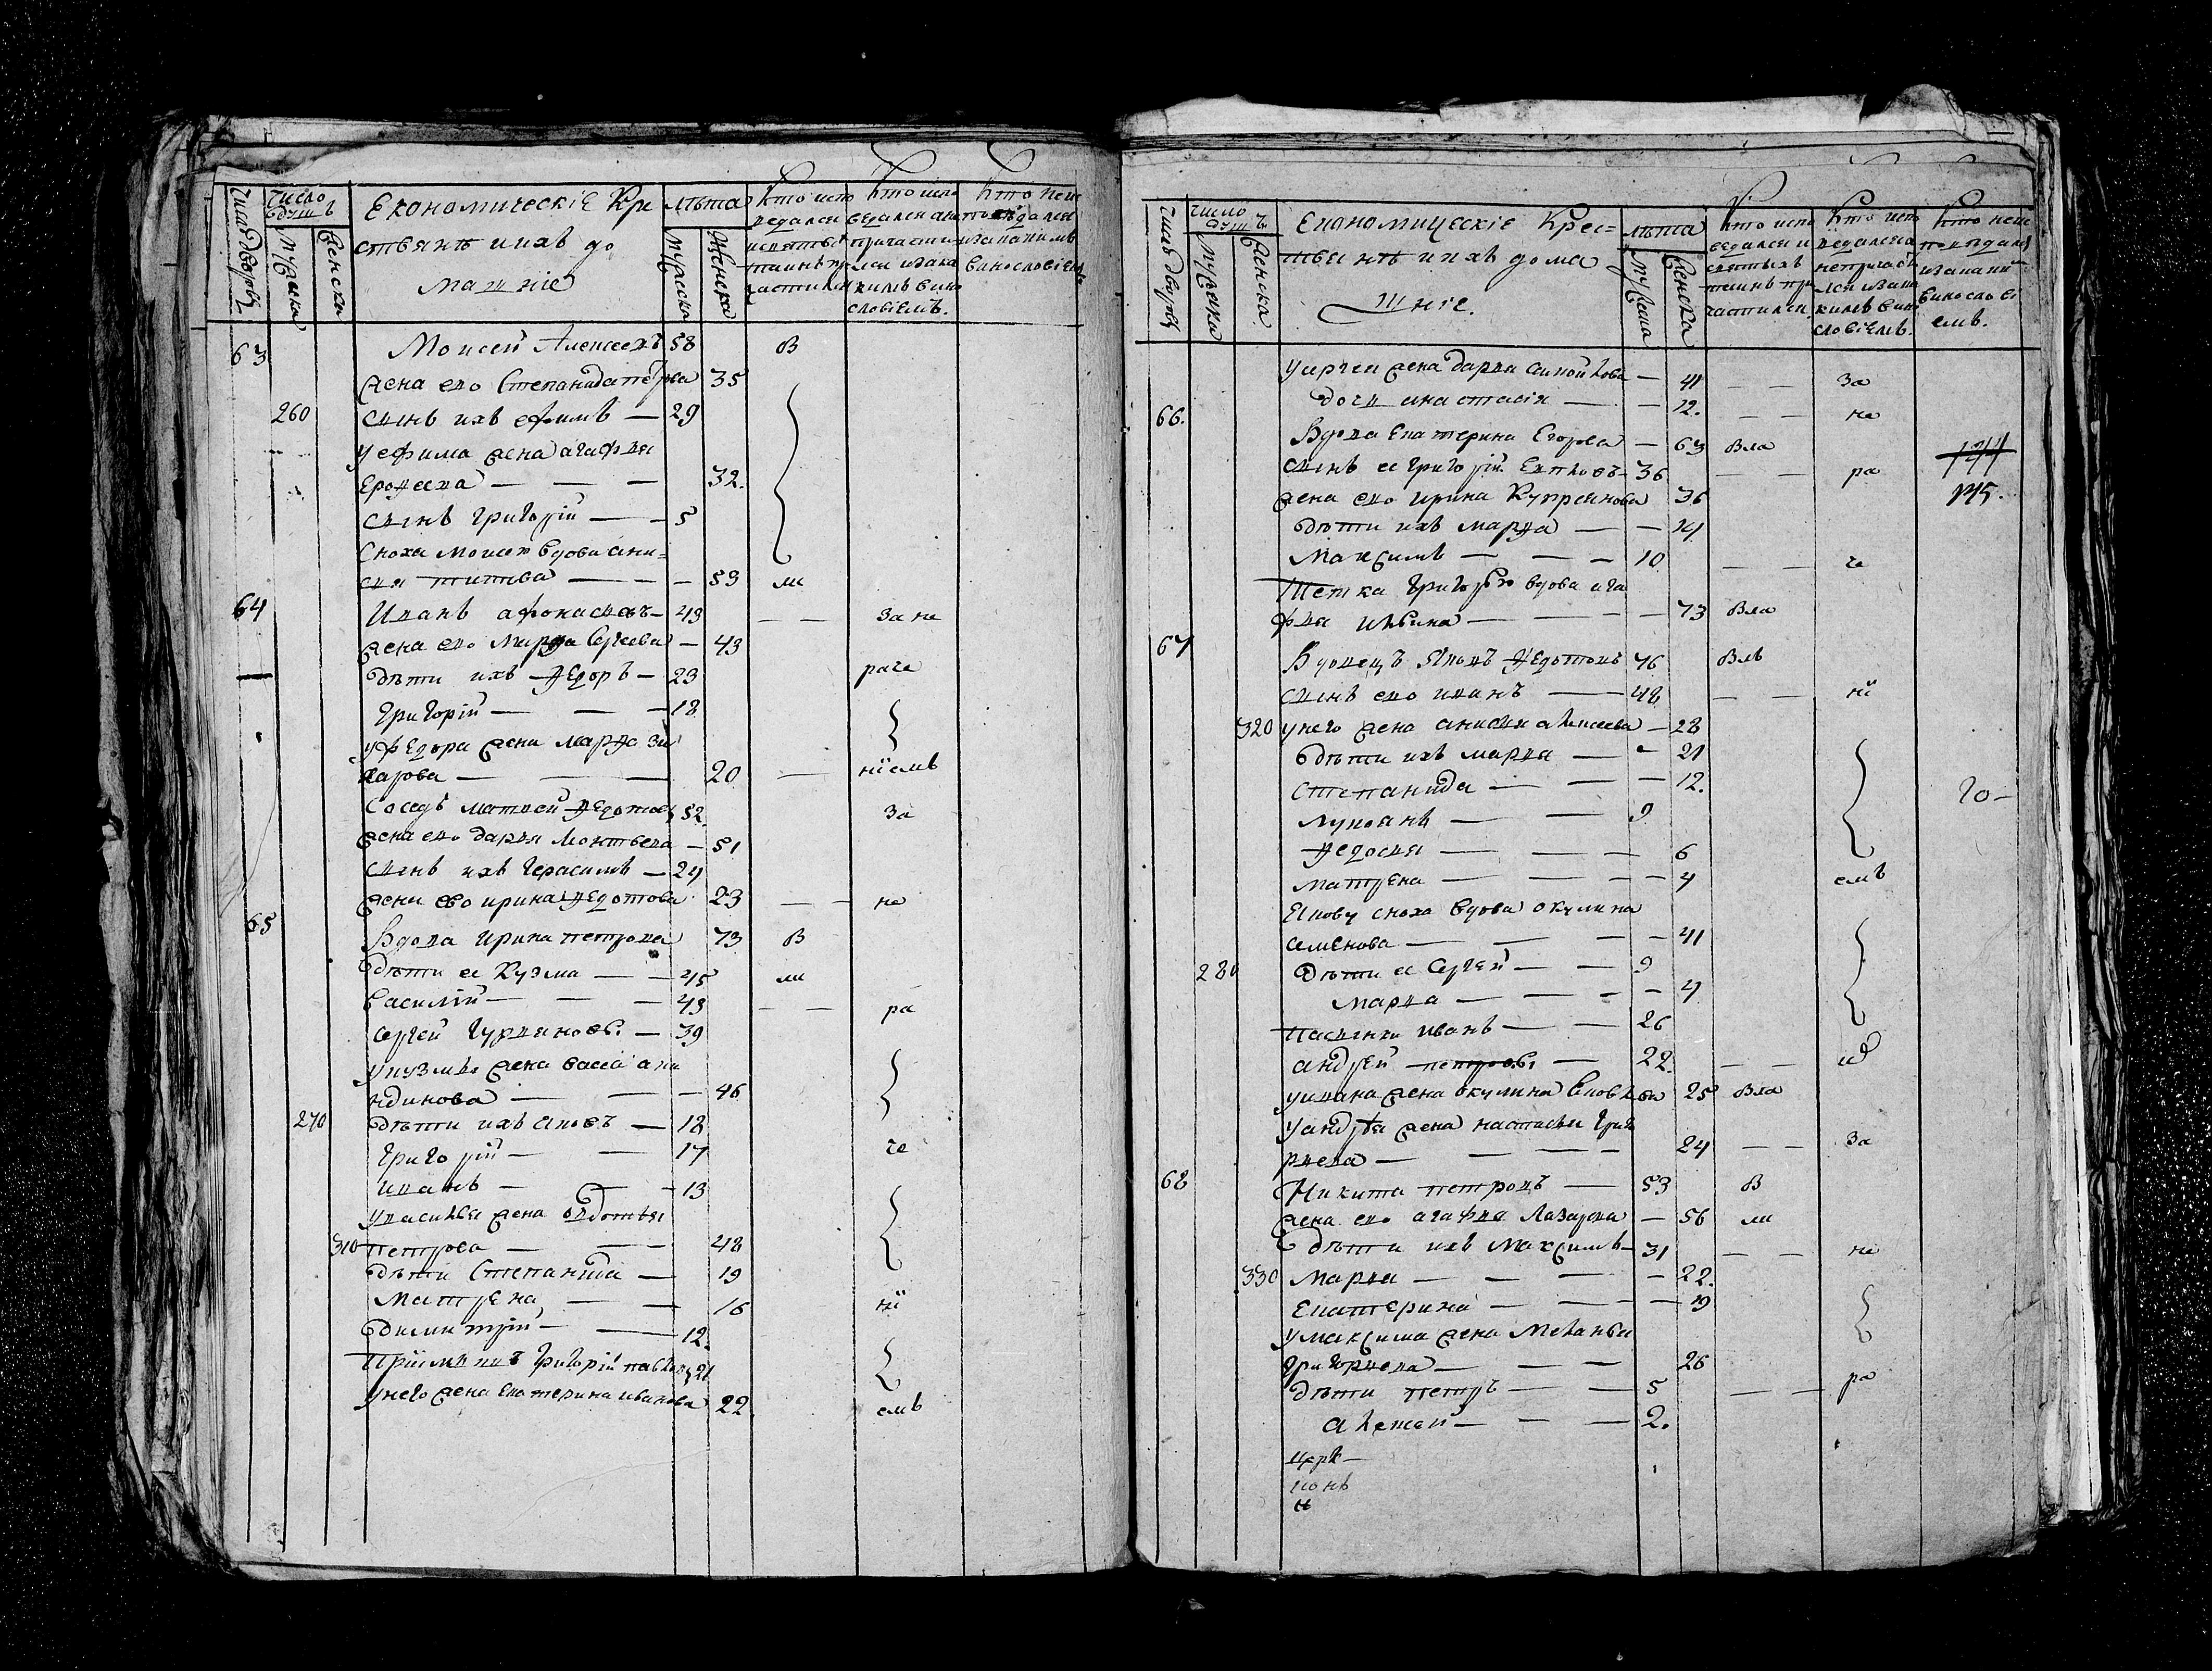 число дворовъ
число душъ
мужска
женска
Економическіе Кре
стьянѣ и ихъ до
машніе
лѣта
мужеска
женска
Кто испо
ведался и
святыхъ
таинъ при
частился
Кто испо
ведался а не
причасти
лся и за ка
кимъ вино
словіемъ.
Кто неис
поведался
и за какимъ
винословіем
63 Моисей Алексеевъ 58 в
жена ево Степанида петрова 35
260 сынъ ихъ ефимъ — 29
у ефима жена агафья
Ерофеева — — — 32.
сынъ григорій — — 5
Сноха Моисею вдова ани=
сья титова — — — 59 ли
64 Иванъ афонасьевъ — 43 — — за не
жена ево Марфа Сергеева — 43
дѣти ихъ Ѳедоръ — 23 раче
Григорій — — — 18
у федора жена марфа За
харова — — — 20 — ніемъ
Соседъ матвей Ѳедотовъ 52. за
жена ево дарья Монтвева — 51
сынъ ихъ Герасимъ — 24
жена ево ирина Ѳедотова 23 — — не
65 Вдова Ирина петрова 73 в
дѣти ее Кузма — — 45 ли
Василій — — — 43 — — ра
Сергей Гурьяновы — 39
у кузмы жена васса ани
кдинова — — — 46
270 дѣти ихъ яковъ — 18
григорій — — 17 че
иванъ — — — 13
у василья жена авдотья
310 петрова — — 48
дѣти Степанида — 19
Матрена — — 16 ні
димитрій — — 12.
Пріимышъ григорій павловъ 21
у него жена Екатерина иванова 22. емъ
число дворовъ
число душъ
мужска
женска
Економическіе Крес=
тьянѣ и ихъ дома
шніе.
лѣта
мужеска
женска
Кто испо
ведался и
святыхъ
таинъ при
частился.
Кто испо
ведался а
непричаст
лся и за ка
кимъ вино
словіемъ.
Кто неис
поведался
и за каки
винослові
емъ.
у сергея жена дарья самойлова — 41 — — за
дочь анастасія — — 12. — — не
66. Вдова Екатерина Егорова — 63 вла
сынъ ее григорій Карповъ — 36 — — ра 144
жена ево ирина Купреянова 36 145.
дѣти ихъ марфа — — 14
Максимъ — — — 10 — — че
Тетка григорью вдова ага
фья илвина — — — 73 вла
67 Вдовецъ Яковъ Ѳедотовъ 76 влъ
сынъ ево иванъ — — 48 — — ні
320 у него жена анисья алексеева — 28
дѣти ихъ марья — — 21
Степанида — — — 12.
Лукоянъ — — 9 20 —
Ѳедосья — — — 6
матрена — — — 4 емъ
Якову сноха вдова окулина
семенова — — — 41
280 дѣти ее Сергей — — 9
марья — — — — 4
Пасынки иванъ — — 26
андрей петровы — 22. — —
у ивана жена окулина 25 вла
у андрея жена настасья Григо
рьева — — — 24 — — за
68 Никита петровъ — 53 в
жена ево агафья Лазарева — 56 ли
дѣти ихъ Максимъ — 31 — — не
330 Марья — — — — 22.
Екатерина — — — 19
у максима жена Меланья
григорьева — — — 26
дѣти петръ — — 5 — — ра
алексей — — — 2.